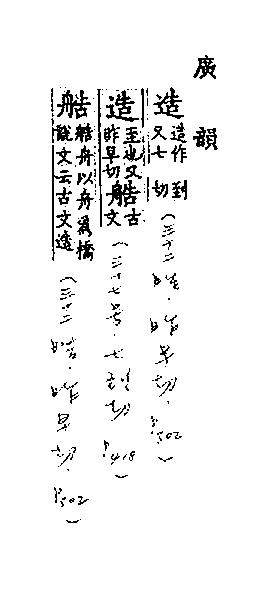 廣韻
造 造作又七到切
(三十二 皓．昨早切．P.302)
造 至也又昨早切 艁古文
(三十七 号．七到切 P.418)
艁 艁舟以舟爲橋說文云古文造
(三十二 皓．昨早切．P.302)